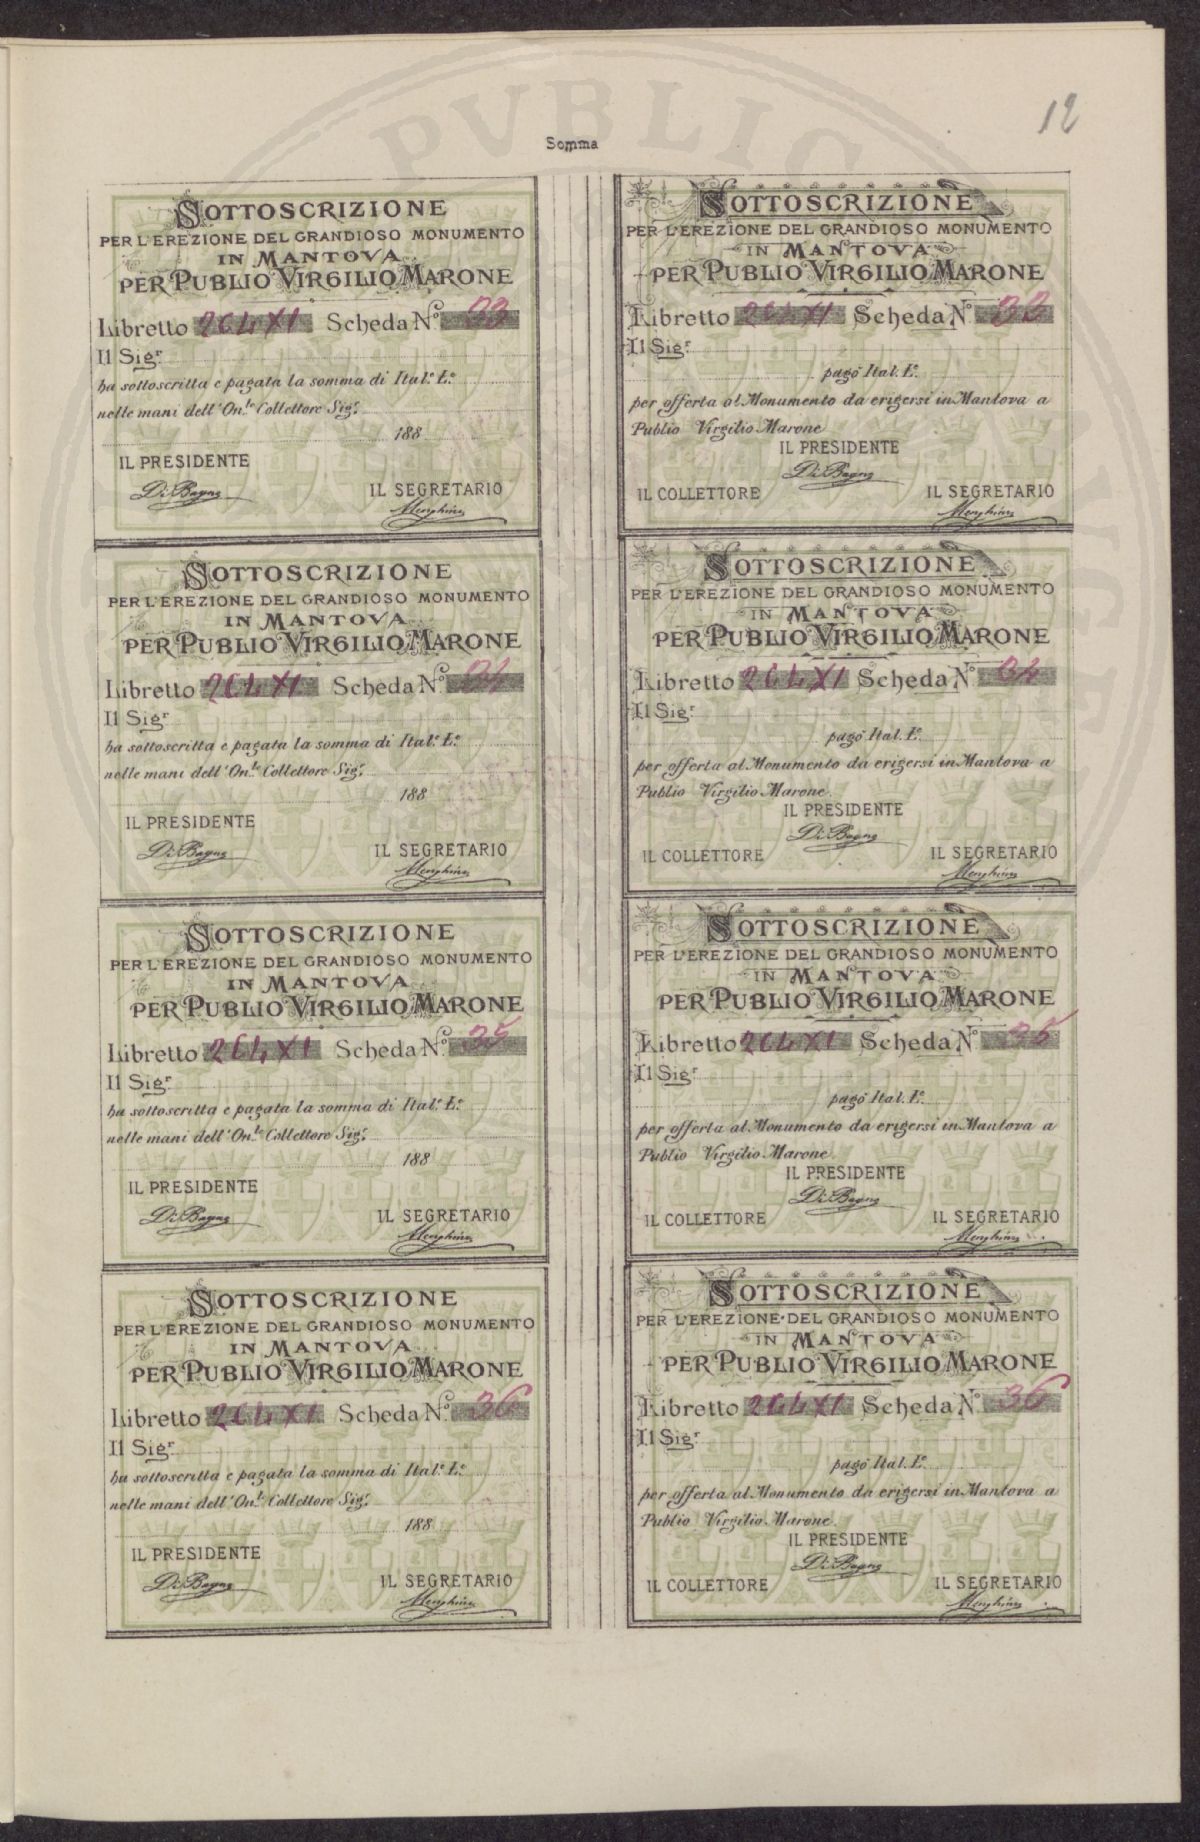 12
Somma
SOTTOSCRIZIONE
PER L'EREZIONE DEL GRANDIOSO MONUMENTO
IN MANTOVA
PER PUBLIO VIRGILIO MARONE
Libretto 264 XI Scheda N.º 33
Il Sig.r
ha sottoscritta e pagata la somma di Ital.e L.e
nelle mani dell'On.le Collettore Sig.r
188
IL PRESIDENTE
Di Bagno
IL SEGRETARIO
Menghini
SOTTOSCRIZIONE
PER L'EREZIONE DEL GRANDIOSO MONUMENTO
IN MANTOVA
PER PUBLIO VIRGILIO MARONE
Libretto 264 XI Scheda N.º 33
Il Sig.r
pagò Ital. L.e
per offerta al Monumento da erigersi in Mantova a
Publio Virgilio Marone
IL PRESIDENTE
Di Bagno
IL COLLETTORE IL SEGRETARIO
Menghini
SOTTOSCRIZIONE
PER L'EREZIONE DEL GRANDIOSO MONUMENTO
IN MANTOVA
PER PUBLIO VIRGILIO MARONE
Libretto 264 XI Scheda N.º 34
Il Sig.r
ha sottoscritta e pagata la somma di Ital.e L.e
nelle mani dell'On.le Collettore Sig.r
188
IL PRESIDENTE
Di Bagno
IL SEGRETARIO
Menghini
SOTTOSCRIZIONE
PER L'EREZIONE DEL GRANDIOSO MONUMENTO
IN MANTOVA
PER PUBLIO VIRGILIO MARONE
Libretto 264 XI Scheda N.º 34
Il Sig.r
pagò Ital. L.e
per offerta al Monumento da erigersi in Mantova a
Publio Virgilio Marone.
IL PRESIDENTE
Di Bagno
IL COLLETTORE IL SEGRETARIO
Menghini
SOTTOSCRIZIONE
PER L'EREZIONE DEL GRANDIOSO MONUMENTO
IN MANTOVA
PER PUBLIO VIRGILIO MARONE
Libretto 264 XI Scheda N.º 35
Il Sig.r
ha sottoscritta e pagata la somma di Ital.e L.e
nelle mani dell'On.le Collettore Sig.r
188
IL PRESIDENTE
Di Bagno
IL SEGRETARIO
Menghini
SOTTOSCRIZIONE
PER L'EREZIONE DEL GRANDIOSO MONUMENTO
IN MANTOVA
PER PUBLIO VIRGILIO MARONE
Libretto 264 XI Scheda N.º 35
Il Sig.r
pagò Ital. L.e
per offerta al Monumento da erigersi in Mantova a
Publio Virgilio Marone
IL PRESIDENTE
Di Bagno
IL COLLETTORE IL SEGRETARIO
Menghini
SOTTOSCRIZIONE
PER L'EREZIONE DEL GRANDIOSO MONUMENTO
IN MANTOVA
PER PUBLIO VIRGILIO MARONE
Libretto 264 XI Scheda N.º 36
Il Sig.r
ha sottoscritta e pagata la somma di Ital.e L.e
nelle mani dell'On.le Collettore Sig.r
188
IL PRESIDENTE
Di Bagno
IL SEGRETARIO
Menghini
SOTTOSCRIZIONE
PER L'EREZIONE DEL GRANDIOSO MONUMENTO
IN MANTOVA
PER PUBLIO VIRGILIO MARONE
Libretto 264 XI Scheda N.º 36
Il Sig.r
pagò Ital. L.e
per offerta al Monumento da erigersi in Mantova a
Publio Virgilio Marone.
IL PRESIDENTE
Di Bagno
IL COLLETTORE IL SEGRETARIO
Menghini